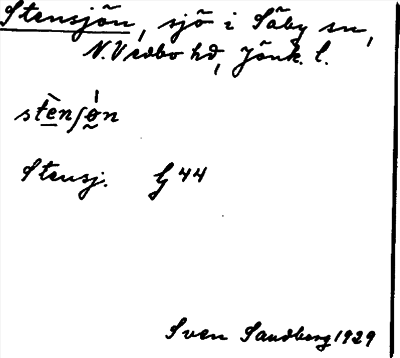 Stensjön, sjö i Säby sn,
N. Vedbo hd, Jönk. l.
stènʃø̀n
Stensj. G 44
Sven Sandberg 1929